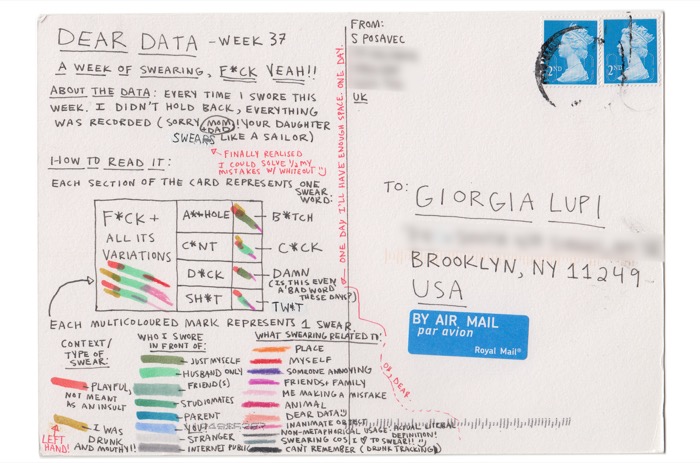 DEAR DATA - WEEK 37
A WEEK OF SWEARING, F*CK YEAH!!
ABOUT THE DATA: EVERY TIME I SWORE THIS
WEEK. I DIDN'T HOLD BACK, EVERYTHING
WAS RECORDED (SORRY, MOM + DAD! YOUR DAUGHTER
SWEARS LIKE A SAILOR)
FINALLY REALISED
I COULD SOLVE 1/2 MY
MISTAKES W/ WHITEOUT
HOW TO READ IT:
EACH SECTION OF THE CARD REPRESENTS ONE
SWEAR
WORD:
F*CK +
ALL ITS
VARIATIONS
A**HOLE
B*TCH
C*NT
C*CK
D*CK
DAMN
(IS THIS EVEN
A BAD WORD
THESE DAYS?)
SH*T
TW*T
EACH MULTICOLOURED MARK REPRESENTS 1 SWEAR.
CONTEXT/
TYPE OF
SWEAR:
PLAYFUL,
NOT MEANT
AS AN INSULT
I WAS
DRUNK
AND MOUTHY!
LEFT
HAND!
WHO I SWORE
IN FRONT OF:
JUST MYSELF
HUSBAND ONLY
FRIEND(S)
STUDIOMATES
PARENT
YOU!
STRANGER
INTERNET PUBLIC
WHAT SWEARING RELATED TO:
PLACE
MYSELF
SOMEONE ANNOYING
FRIENDS + FAMILY
ME MAKING A MISTAKE
ANIMAL
DEAR DATA
INANIMATE OBJECT
NON-METAPHORICAL USAGE: ACTUAL LITERAL
DEFINITION!
SWEARING COS I ♥ TO SWEAR!!
CAN'T REMEMBER (DRUNK TRACKING)
ONE DAY I'LL HAVE ENOUGH SPACE. ONE DAY.
OH, DEAR.
FROM:
S POSAVEC
UK
2ND
2ND
TO: GIORGIA LUPI
BROOKLYN, NY 11249
USA
BY AIR MAIL
par avion
Royal Mail®